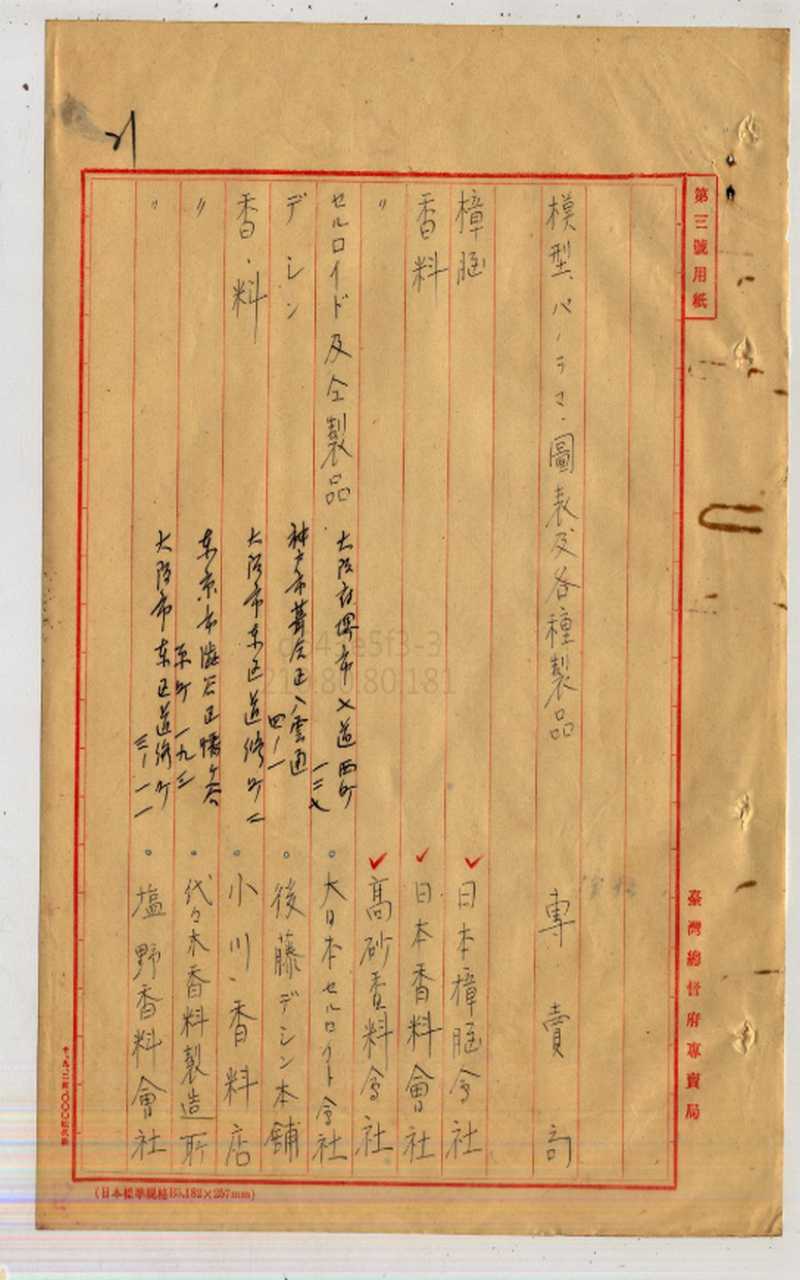 第三號用紙
模型、パノラマ、圖表及各種製品 專賣局
樟腦 日本樟腦会社
香料 日本香料會社
〃 高砂香料会社
セルロイド及仝製品 大阪府堺市 西町 一三七 大日本セルロイド会社
デシン 神戸市葺合区八雲通 四ノ一 後藤デシン本舗
香料 大阪市东区道修町二 小川香料店
〃 东京市澁谷区幡ヶ谷 一九三 代々木香料製造所
〃 大阪市东区道修町 三ノ一一 塩野香料會社
臺灣總督府專賣局
(日本標準規格B5.182×257mm)